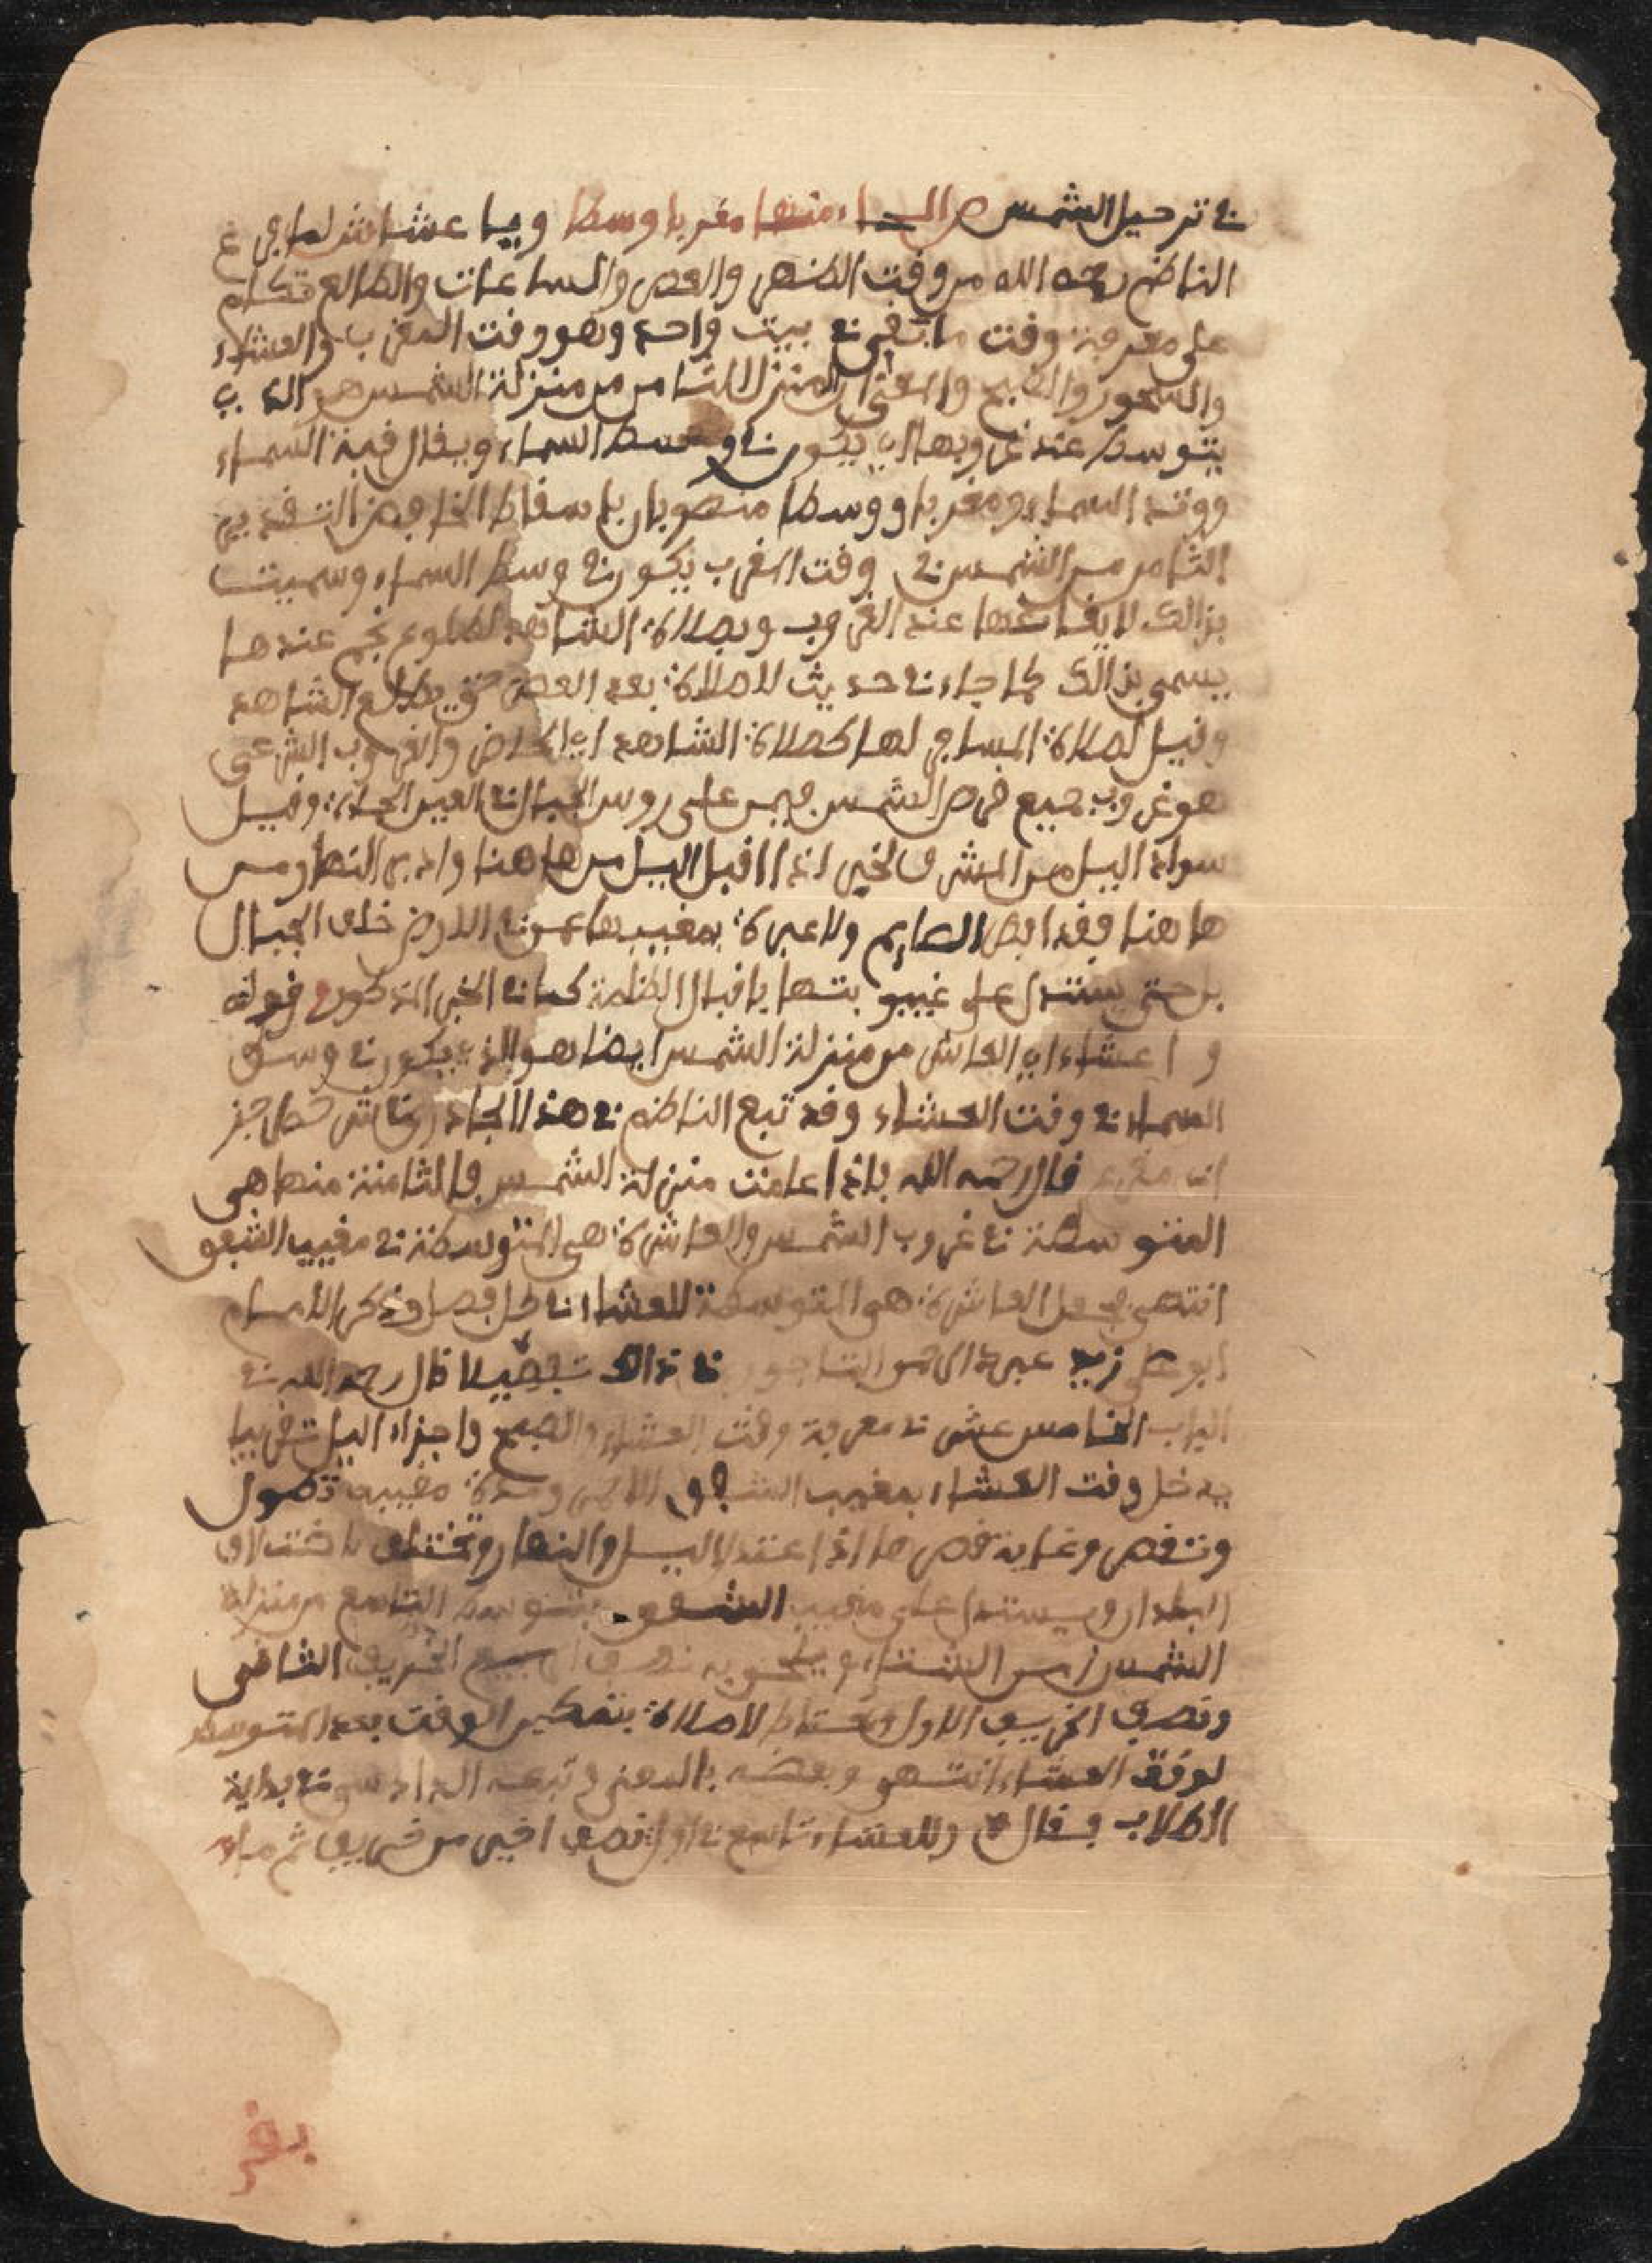 في ترحيل الشمس ص الحاء منها مغربا وسطا ويا عشاش لما فرغ
الناظم رحمه الله من وقت الظهر والعصر والساعات والطالع تكلم
على معرفة وقت ما بقي في بيت واحد وهو وقت المغرب والعشاء
والسحور والصبح والمعنى أن المنزل الثامن من منزلة الشمس هو الذي
يتوسط عند غروبها اي يكون في وسط السماء ويقال قبة السماء
ووتد السماء ومغربا ووسطا منصوبان باسقاط الخافض التقدير
الثامن من الشمس في وقت المغرب يكون في وسط السماء وسميت
بذالك لايقاعها عند الغروب وبصلاة الشاهد لطلوع نجم عندها
يسمى بذالك كما جاء في حديث لا صلاة بعد العصر حتى يطلع الشاهد
وقيل لصلاة المسافر لها كصلاة الشاهد اي الحاضر والغروب الشرعي
هو غروب جميع قرص الشمس فيمن على روس الجبال في العين الحمئة وقيل
سواد اليل من المشرق لخبر اذا اقبل اليل من هاهنا وادبر النهار من
هاهنا فقد افطر الصايم ولا عبرة بمغيبها عمن في الارض خلف الجبال
بل حتى يستدل على غيبوبتها باقبال الظلمة كما في الخبر المذكور وقوله
و اعشاء اي العاشر من منزلة الشمس ايضا هو الذي يكون في وسط
السماء في وقت العشاء وقد تبع الناظم في هذا
قال رحمه الله باذا علمت منزلة الشمس فالثامنة منها هي
المتوسطة في غروب الشمس والعاشرة هي المتوسطة في مغيب الشفق
انتهى فجعل العاشرة هي المتوسطة للعشاء في كل فصل وذكر الامام
ابو زيد عبد الرحمن التاجوري في ذالك تفصيلا قال رحمه الله في
الباب الخامس عشر في معرفة وقت العشاء والصبح واجزاء اليل تقريبا
يدخل وقت العشاء بمغيب الشفق الاحمر ومدة مغيبه تطول
وتنقص وغاية نقصها اذا اعتدل اليل والنهار وتختلف باختلاف
البلدان ويستدل على مغيب الشفق بتوسط التاسع من منزلة
الشمس زمن الشتاء ويلحق به نصف الربيع الخريف الثاني
ونصف الخريف الاول ويحتاط للصلاة بتمكين الوقت بعد المتوسط
لوقت العشاء انتهى وبعضه بالمعنى وتبعه الدادسي في بداية
الطلاب فقال ص وللعشاء تاسع في اول نصف اخير من خريف ثم مل
بفر